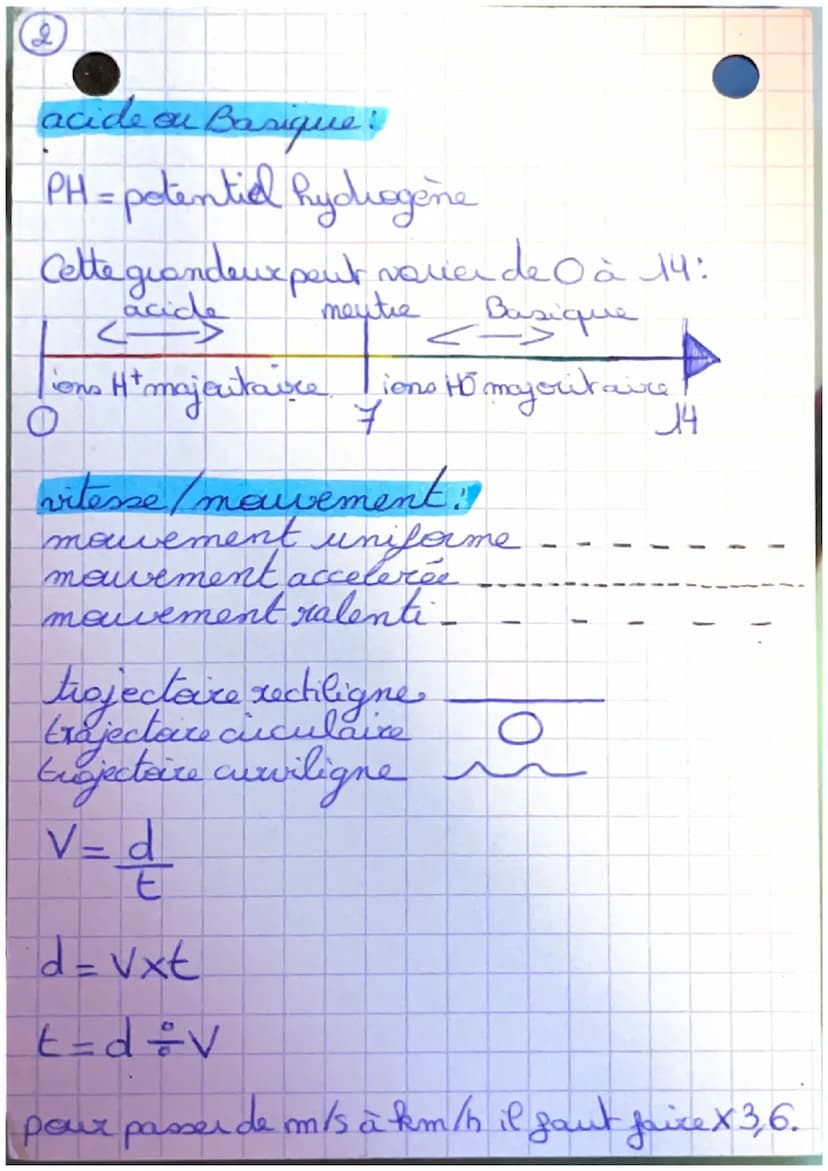 2
acide ou Basique :
PH = potentiel hydrogène
Cette grandeur peut varier de 0 à 14 :
acide neutre Basique
ions H⁺ majoritaire ions HO⁻ majoritaire
0 7 14
vitesse/mouvement :
mouvement uniforme
mouvement accelerée
mouvement ralenti
trajectoire rectiligne
trajectoire circulaire
trajectoire curviligne
V = d/t
d = V x t
t = d ÷ V
pour passer de m/s à km/h il faut faire x 3,6.